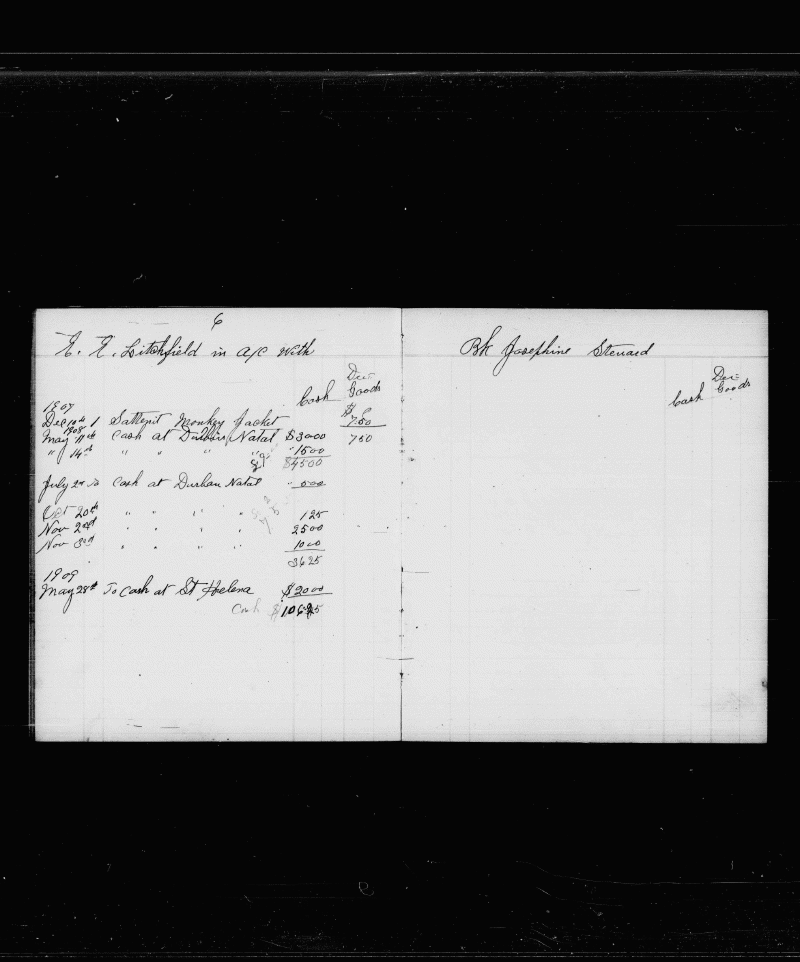 6
E. E. Litchfield in a/c With
Cash Dur Goods
1907
Dec 10th 1 Sattenit Monkey Jacket $ 750
1908
May 11th Cash at Durban Natal $3000 750
" 14th " " " " " 1500
$4500
July 2nd To Cash at Durban Natal " 500
Oct 20th " " " " 125
Nov 2nd " " " " 2500
Nov 3rd " " " " 1000
3625
1909
May 28th To Cash at St Helena $2000
Cash $10625
Bk Josephine Steward
Cash Dur Goods